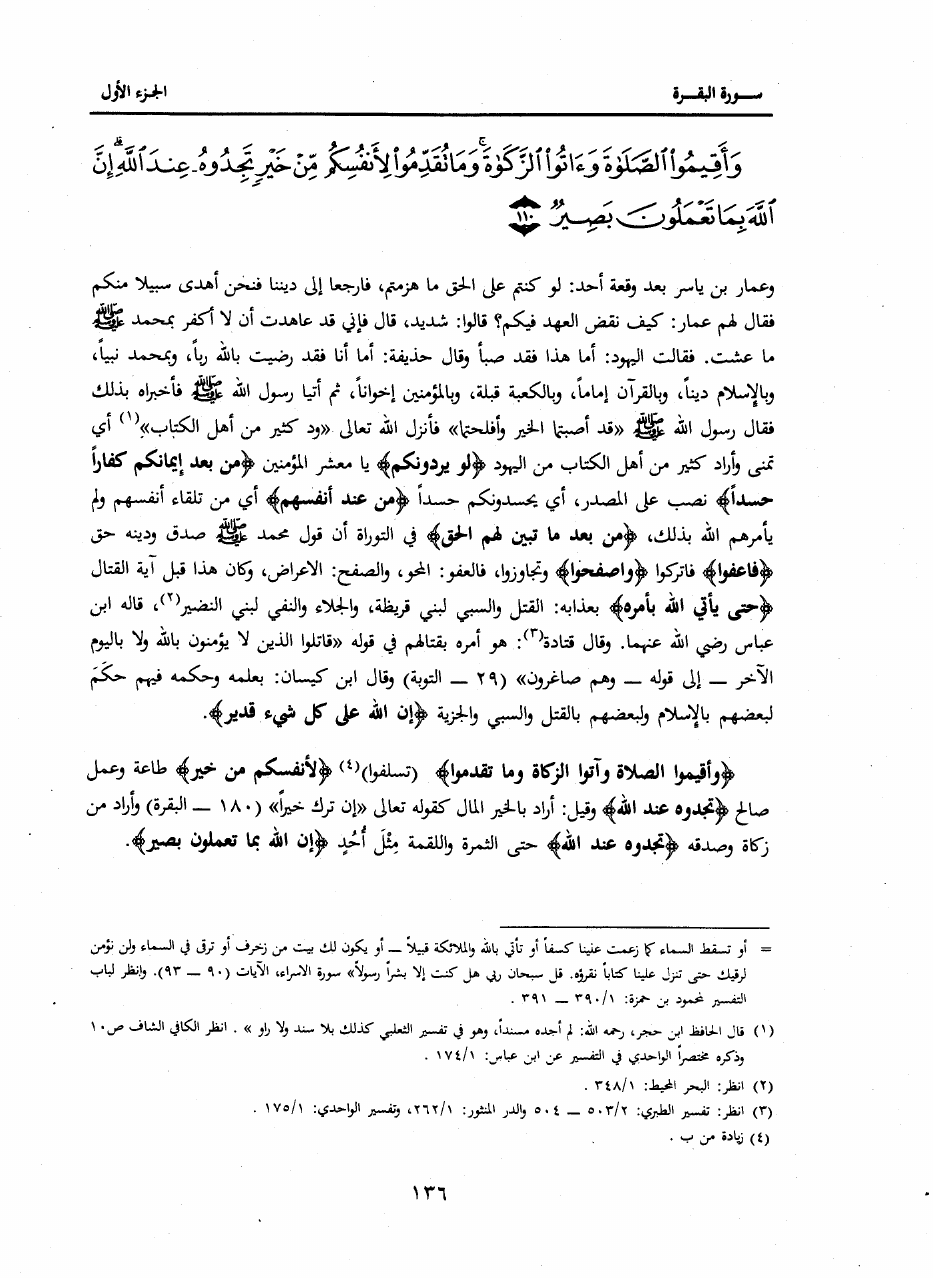 سورة البقرة
الجزء الأول
وَأَقِيمُوا۟ ٱلصَّلَوٰةَ وَءَاتُوا۟ ٱلزَّكَوٰةَ ۚ وَمَا تُقَدِّمُوا۟ لِأَنفُسِكُم مِّنْ خَيْرٍ تَجِدُوهُ عِندَ ٱللَّهِ ۗ إِنَّ
ٱللَّهَ بِمَا تَعْمَلُونَ بَصِيرٌ ١١٠
وعمار بن ياسر بعد وقعة أحد: لو كنتم على الحق ما هزمتم، فارجعا إلى ديننا فنحن أهدى سبيلا منكم
فقال لهم عمار: كيف نقض العهد فيكم؟ قالوا: شديد، قال فإني قد عاهدت أن لا أكفر بمحمد ﷺ
ما عشت. فقالت اليهود: أما هذا فقد صبأ وقال حذيفة: أما أنا فقد رضيت بالله رباً، وبمحمد نبياً،
وبالإسلام ديناً، وبالقرآن إماماً، وبالكعبة قبلة، وبالمؤمنين إخواناً، ثم أتيا رسول الله ﷺ فأخبراه بذلك
فقال رسول الله ﷺ «قد أصبتما الخير وأفلحتما» فأنزل الله تعالى «ود كثير من أهل الكتاب»(١) أي
تمنى وأراد كثير من أهل الكتاب من اليهود ﴿لو يردونكم﴾ يا معشر المؤمنين ﴿من بعد إيمانكم كفاراً
حسداً﴾ نصب على المصدر، أي يحسدونكم حسداً ﴿من عند أنفسهم﴾ أي من تلقاء أنفسهم ولم
يأمرهم الله بذلك، ﴿من بعد ما تبين لهم الحق﴾ في التوراة أن قول محمد ﷺ صدق ودينه حق
﴿فاعفوا﴾ فاتركوا ﴿واصفحوا﴾ وتجاوزوا، فالعفو: المحو، والصفح: الاعراض، وكان هذا قبل آية القتال
﴿حتى يأتي الله بأمره﴾ بعذابه: القتل والسبي لبني قريظة، والجلاء والنفي لبني النضير(٢)، قاله ابن
عباس رضي الله عنهما. وقال قتادة(٣): هو أمره بقتالهم في قوله «قاتلوا الذين لا يؤمنون بالله ولا باليوم
الآخر ــ إلى قوله ــ وهم صاغرون» (٢٩ ــ التوبة) وقال ابن كيسان: بعلمه وحكمه فيهم حكَمَ
لبعضهم بالإسلام ولبعضهم بالقتل والسبي والجزية ﴿إن الله على كل شيء قدير﴾.
﴿وأقيموا الصلاة وآتوا الزكاة وما تقدموا﴾ (تسلفوا)(٤) ﴿لأنفسكم من خير﴾ طاعة وعمل
صالح ﴿تجدوه عند الله﴾ وقيل: أراد بالخير المال كقوله تعالى «إن ترك خيراً» (١٨٠ ــ البقرة) وأراد من
زكاة وصدقه ﴿تجدوه عند الله﴾ حتى الثمرة واللقمة مِثْلَ أُحُدٍ ﴿إن الله بما تعملون بصير﴾.
= أو تسقط السماء كما زعمت علينا كسفاً أو تأتي بالله والملائكة قبيلاً ــ أو يكون لك بيت من زخرف أو ترقى في السماء ولن نؤمن
لرقيك حتى تنزل علينا كتاباً نقرؤه. قل سبحان ربي هل كنت إلا بشراً رسولاً» سورة الاسراء، الآيات (٩٠ ــ ٩٣). وانظر لباب
التفسير لمحمود بن حمزة: ٣٩٠/١ ــ ٣٩١ .
(١) قال الحافظ ابن حجر، رحمه الله: لم أجده مسنداً، وهو في تفسير الثعلبي كذلك بلا سند ولا راو » . انظر الكافي الشاف ص١٠
وذكره مختصراً الواحدي في التفسير عن ابن عباس: ١٧٤/١ .
(٢) انظر: البحر المحيط: ٣٤٨/١ .
(٣) انظر: تفسير الطبري: ٥٠٣/٢ ــ ٥٠٤ والدر المنثور: ٢٦٢/١، وتفسير الواحدي: ١٧٥/١ .
(٤) زيادة من ب .
١٣٦